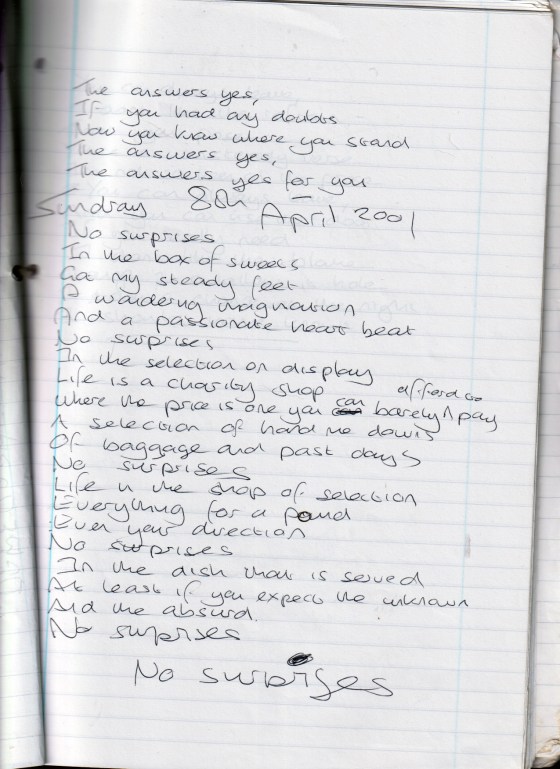 The answers yes,
If you had any doubts
Now you know where you stand
The answers yes,
The answers yes for you
Sundray 8th April 2001
No surprises
In the box of sweets
Got my steady feet
A wandering imagination
And a passionate heart beat
No surprises
In the selection on display
Life is a charity shop
Where the price is one you can barely afford to pay
A selection of hand me downs
Of baggage and past days
No surprises
Life in the shop of selection
Everything for a pound
Even your direction
No surprises
In the dish that is served
At least if you expect the unknown
And the absurd.
No surprises
No surprises